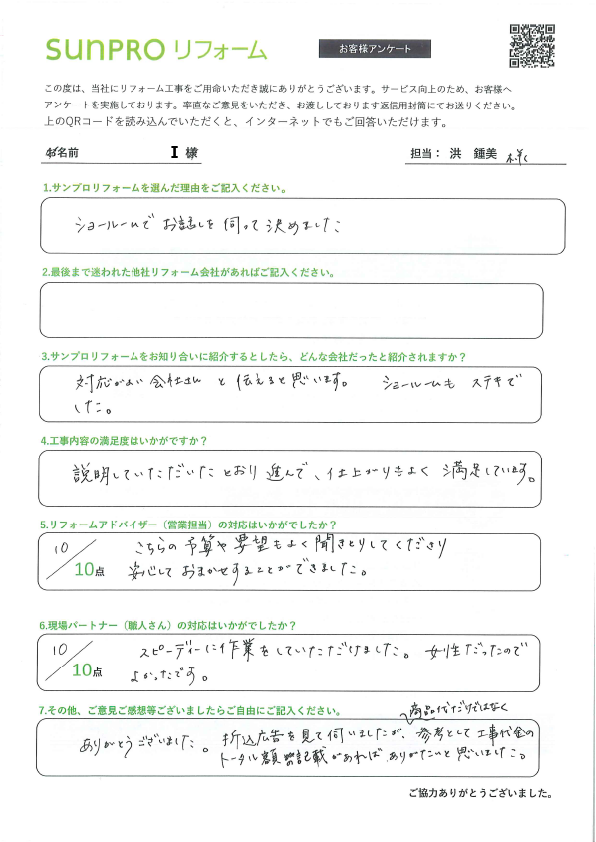 sunPRO リフォーム
お客様アンケート
この度は、当社にリフォーム工事をご用命いただき誠にありがとうございます。サービス向上のため、お客様へ
アンケートを実施しております。率直なご意見をいただき、お渡ししております返信用封筒にてお送りください。
上のQRコードを読み込んでいただくと、インターネットでもご回答いただけます。
お名前 I 様 担当： 洪 鍾美 様
1.サンプロリフォームを選んだ理由をご記入ください。
ショールームで お話しを 伺って 決めました
2.最後まで迷われた他社リフォーム会社があればご記入ください。
3.サンプロリフォームをお知り合いに紹介するとしたら、どんな会社だったと紹介されますか？
対応がよい 会社さん と 伝えると思います。 ショールームも ステキで
した。
4.工事内容の満足度はいかがですか？
説明していただいたとおり 進んで、仕上がりもよく 満足しています。
5.リフォームアドバイザー（営業担当）の対応はいかがでしたか？
10／10点 こちらの予算や要望もよく聞きとりしてくださり
安心して おまかせすることができました。
6.現場パートナー（職人さん）の対応はいかがでしたか？
10／10点 スピーディーに作業をしていただけました。 女性だったので
よかったです。
7.その他、ご意見ご感想等ございましたらご自由にご記入ください。
商品代だけではなく
ありがとうございました。 折込広告を見て伺いましたが、参考として工事代金の
トータル額の記載があれば ありがたいと思いました。
ご協力ありがとうございました。